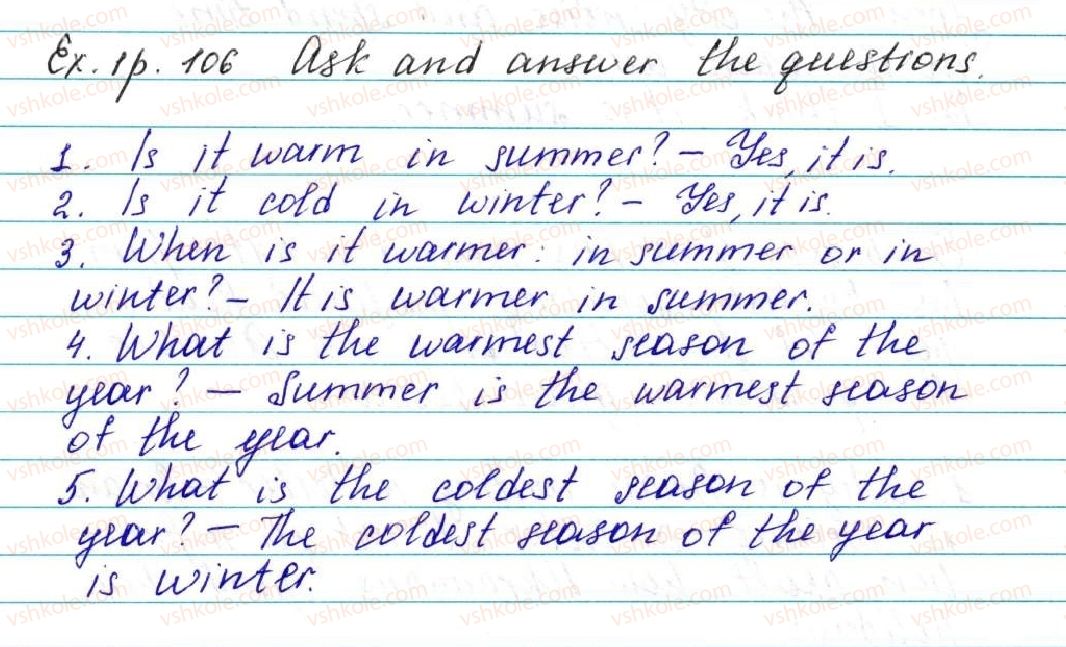 Ex. 1 p. 106 Ask and answer the questions.
1. Is it warm in summer? – Yes, it is.
2. Is it cold in winter? – Yes, it is.
3. When is it warmer: in summer or in
winter? – It is warmer in summer.
4. What is the warmest season of the
year? – Summer is the warmest season
of the year.
5. What is the coldest season of the
year? – The coldest season of the year
is winter.